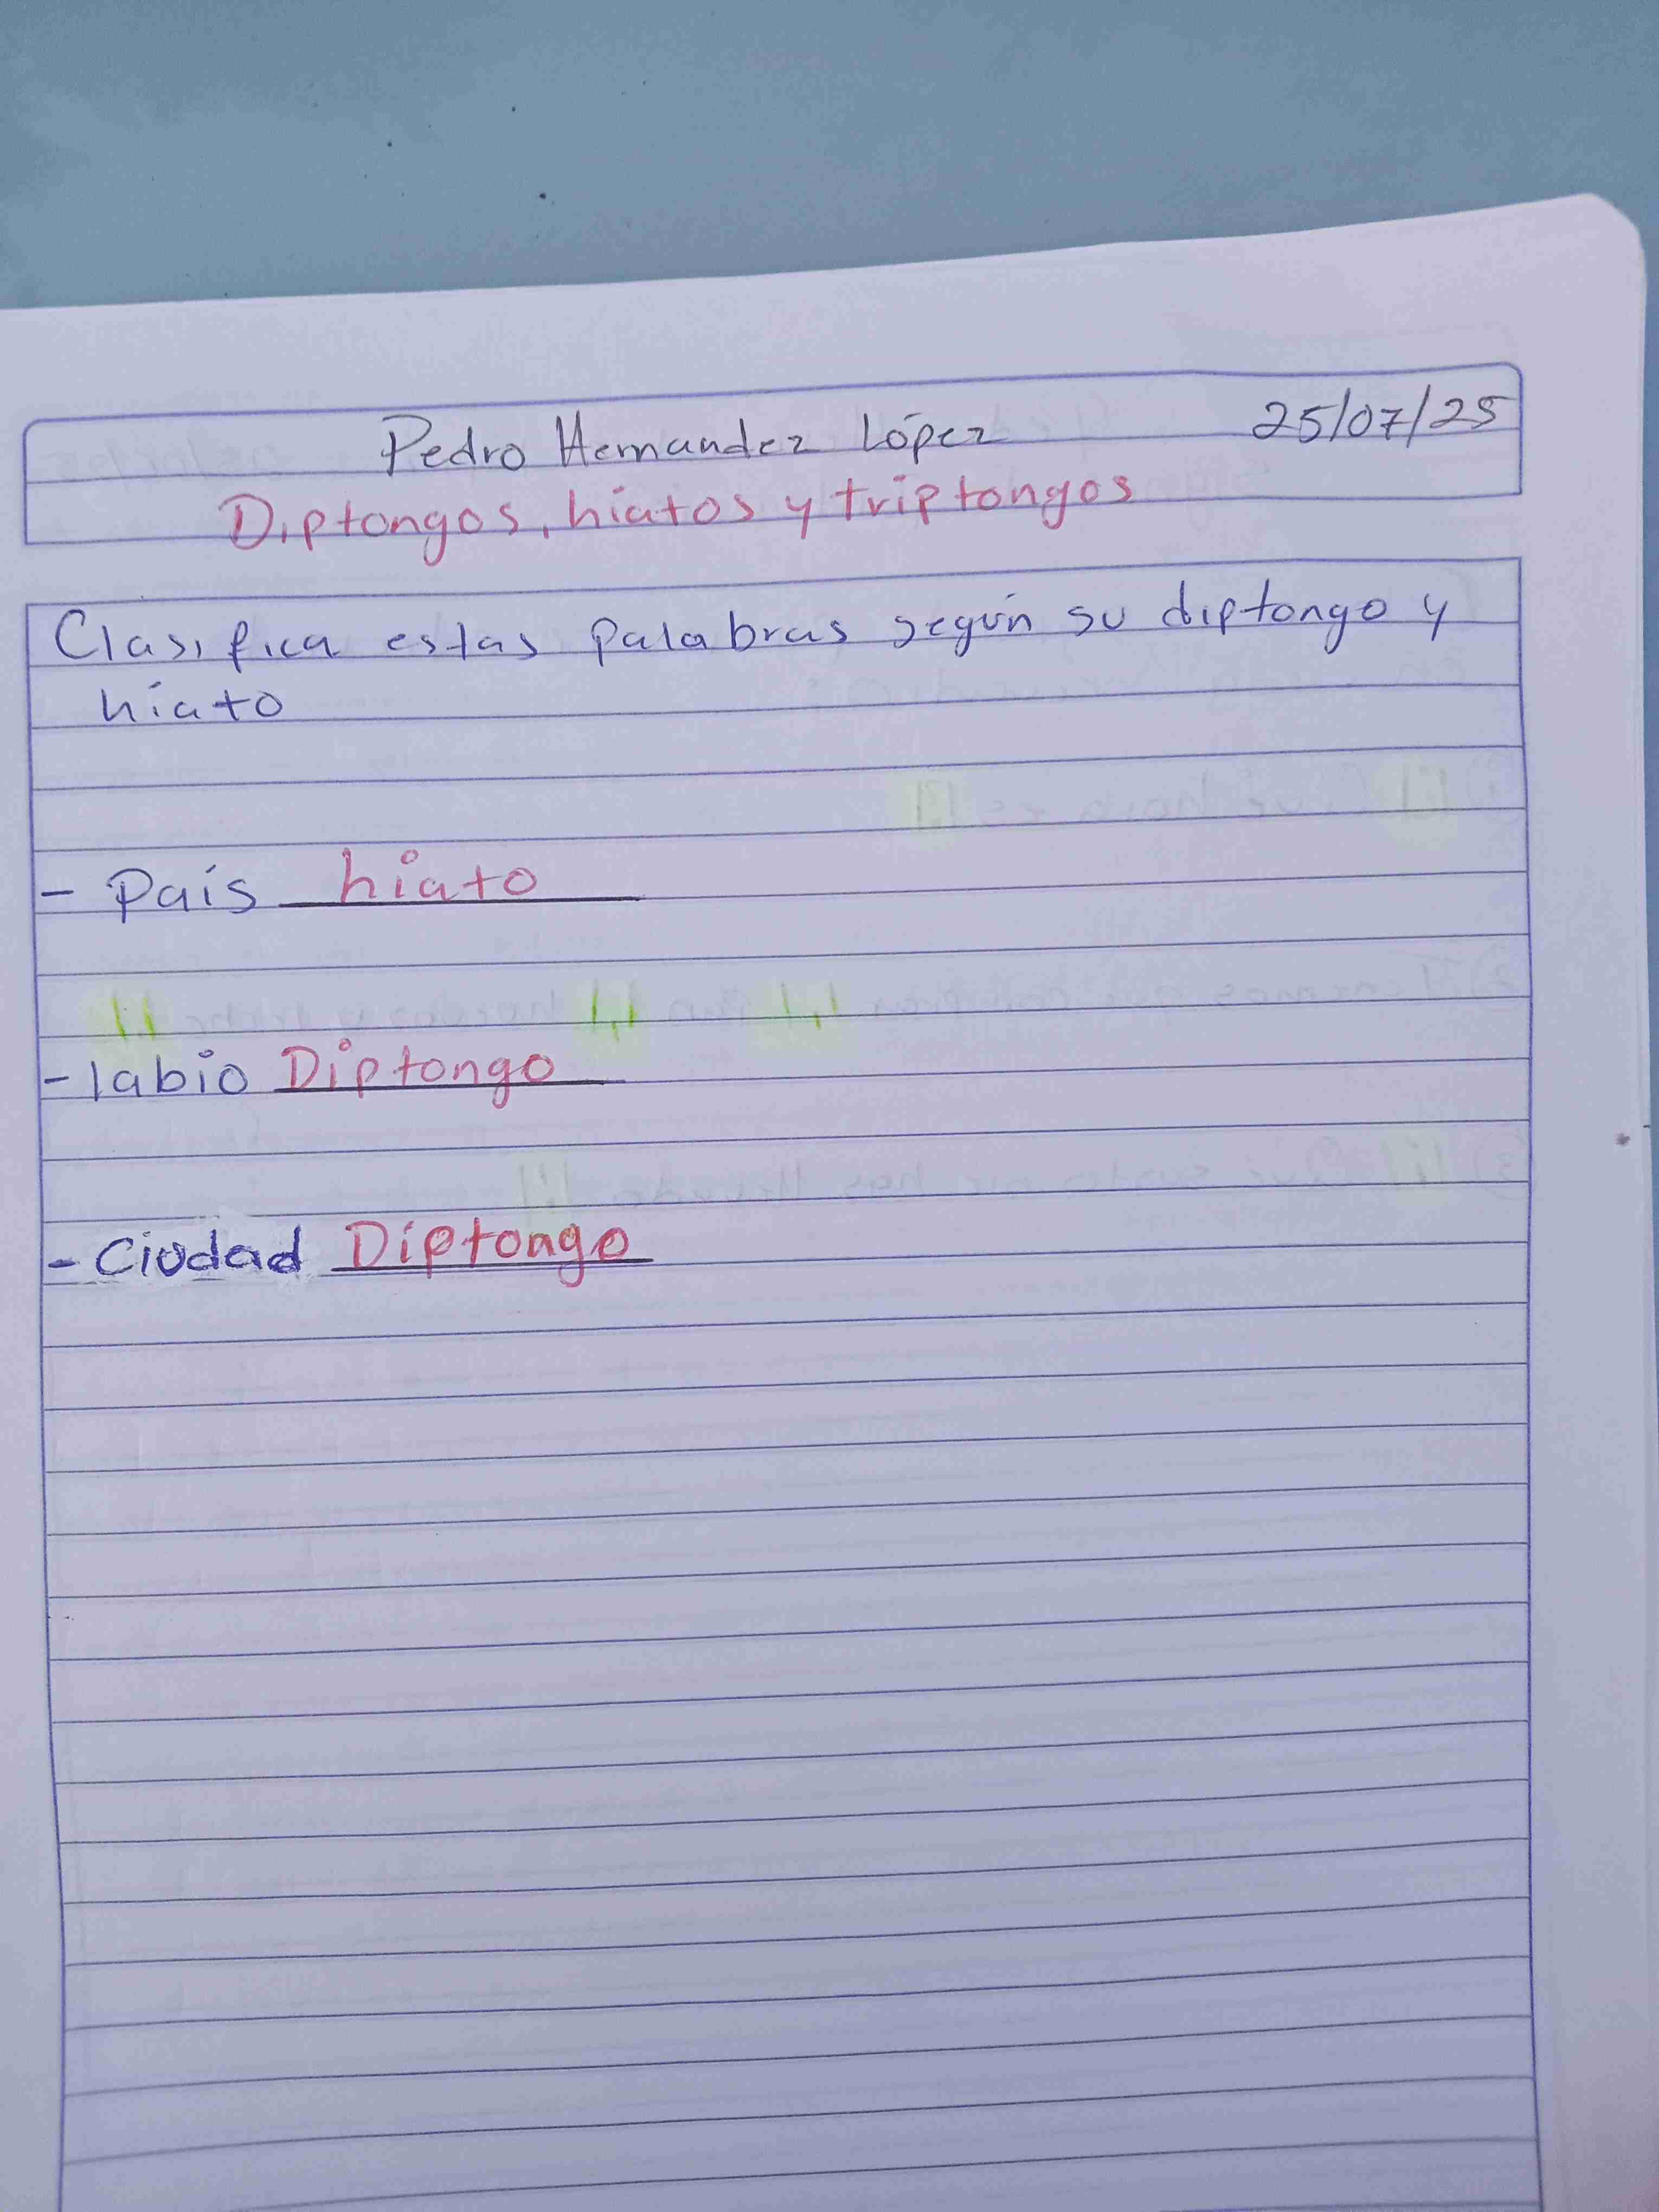 Pedro Hernandez López 25/07/25
Diptongos, hiatos y triptongos
Clasifica estas palabras según su diptongo y
hiato
- País hiato
- labio Diptongo
- Ciudad Diptongo